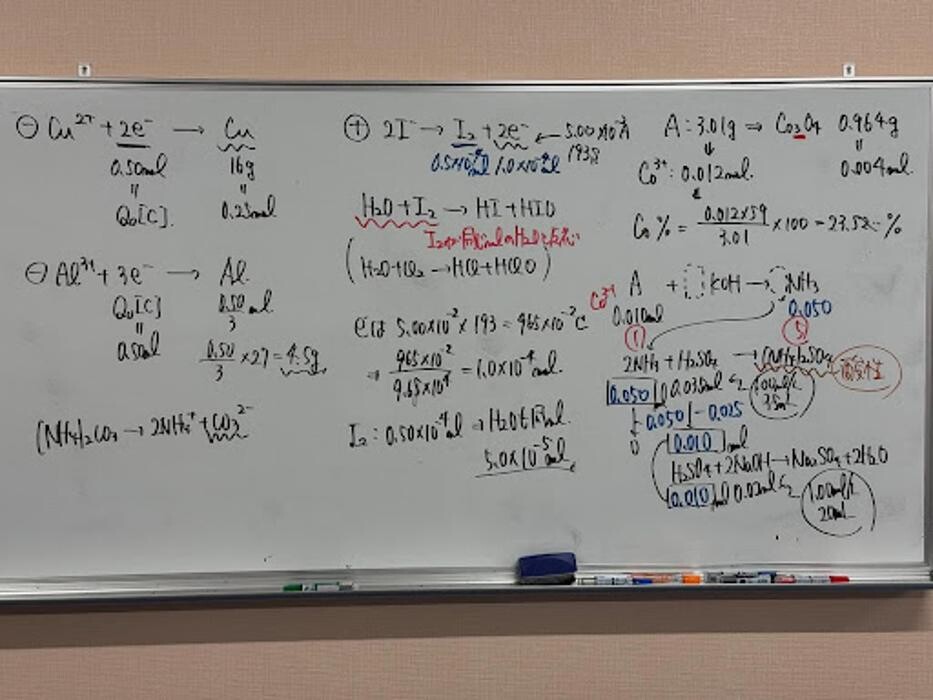 ⊖ Cu²⁺ + 2e⁻ → Cu
0.50mol 16g
〃 〃
Q₀[C]. 0.25mol
⊖ Al³⁺ + 3e⁻ → Al
Q₀[C] 0.50/3 mol
〃
0.50mol 0.50/3 × 27 = 4.5g
(NH₄)₂CO₃ → 2NH₄⁺ + CO₃²⁻
⊕ 2I⁻ → I₂ + 2e⁻ ← 5.00×10⁻²A
193秒
0.5×10⁻⁴mol 1.0×10⁻⁴mol
H₂O + I₂ → HI + HIO
I₂が同じmolのH₂Oと反応
(H₂O + Cl₂ → HCl + HClO)
e⁻は 5.00×10⁻² × 193 = 965×10⁻²C
⇒ 965×10⁻²/9.65×10⁴ = 1.0×10⁻⁴mol.
I₂: 0.50×10⁻⁴mol → H₂Oも同mol.
5.0×10⁻⁵mol
A: 3.01g ⇒ Co₃O₄ 0.964g
↓ 〃
Co³⁺: 0.012mol. 0.004mol.
Co% = 0.012×59/3.01 × 100 = 23.52… %
Co³⁺ A + KOH → NH₃
0.010mol 0.050
① ⑤
2NH₃ + H₂SO₄ → (NH₄)₂SO₄
0.050 0.035mol 1.00mol/L
35mL
↓ -0.050 -0.025
0 0.010 mol
H₂SO₄ + 2NaOH → Na₂SO₄ + 2H₂O
0.010 mol 0.02mol 1.00mol/L
20mL